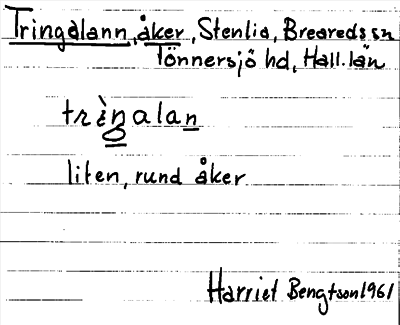 Tringalann, åker, Stenlia, Breareds sn
Tönnersjö hd, Hall. län
trìn̥alan
liten, rund åker
Harriet Bengtson 1961